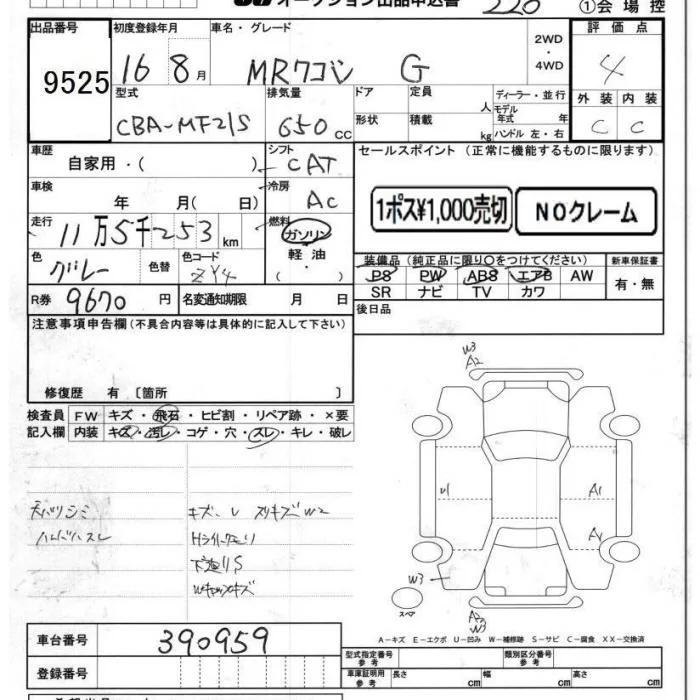 オークション出品申込書 220 ①会場控
出品番号 初度登録年月 車名・グレード 2WD・4WD 評価点
9525 16 8月 MRワゴン G 4
型式 排気量 ドア 定員 人 ディーラー・並行 外装 内装
CBA-MF21S 650cc 形状 積載 kg モデル年式 年 ハンドル 左・右 C C
車歴 シフト セールスポイント (正常に機能するものに限ります)
自家用・( ) CAT
車検 冷房
年 月( 日) AC 1ポス¥1,000売切 NOクレーム
走行 燃料
11万5千253km ガソリン
軽油
・
( )
色 色替 色コード 装備品(純正品に限り○をつけてください) 新車保証書
グレー ZY4 PS PW ABS エアB AW 有・無
SR ナビ TV カワ
R券 9670円 名変通知期限 月 日
後日品
注意事項申告欄(不具合内容等は具体的に記入して下さい)
修復歴 有 〔箇所 〕
検査員 FW キズ・飛石・ヒビ割・リペア跡・×要
記入欄 内装 キズ・汚レ・コゲ・穴・スレ・キレ・破レ
W3
A2
天バリシミ キズ、レ スリキズW2
ハンドルスレ Hライトクモリ
下廻りS
U1 A1
AY
W3
スペア
A2
W3
A-キズ E-エクボ U-凹み W-補修跡 S-サビ C-腐食 XX-交換済
車台番号 390959
型式指定番号 参考 類別区分番号 参考
登録番号 車庫証明用 参考 長さ cm 幅 cm 高さ cm